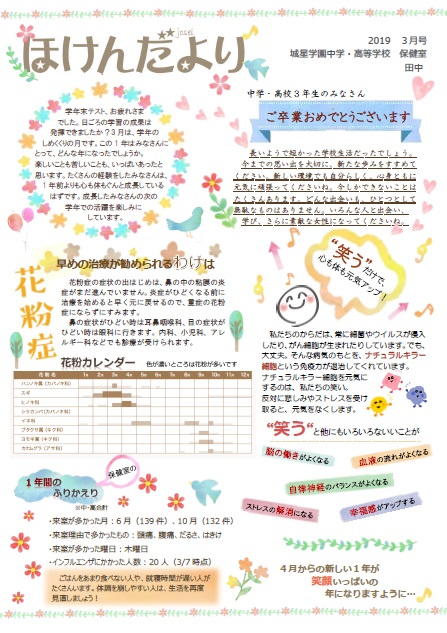 ほけんだより
josei
2019　3月号
城星学園中学・高等学校　保健室
田中
学年末テスト、お疲れさま
でした。日ごろの学習の成果は
発揮できましたか？3月は、学年の
しめくくりの月です。この1年はみなさんに
とって、どんな年になったでしょうか。
楽しいことも苦しいことも、いっぱいあったと
思います。たくさんの経験をしたみなさんは、
1年前よりも心も体もぐんと成長している
はずです。成長したみなさんの次の
学年での活躍を楽しみに
しています。
中学・高校3年生のみなさん
ご卒業おめでとうございます
長いようで短かった学校生活だったでしょう。
今までの思い出を大切に、新たな歩みをすすめて
ください。新しい環境でも自分らしく、心身ともに
元気に頑張ってくださいね。今しかできないことは
たくさんあります。どんな出会いも、ひとつとして
無駄なものはありません。いろんな人と出会い、
学び、さらに素敵な女性になってくださいね。
花粉症
早めの治療が勧められるわけは
花粉症の症状の出はじめは、鼻の中の粘膜の炎
症がまだ進んでいません。炎症がひどくなる前に
治療を始めると早く元に戻せるので、重症の花粉
症にならずにすみます。
鼻の症状がひどい時は耳鼻咽喉科、目の症状が
ひどい時は眼科に行きます。内科、小児科、アレ
ルギー科などでも診療が受けられます。
花粉カレンダー　色が濃いところは花粉が多いです
花粉名 1月 2月 3月 4月 5月 6月 7月 8月 9月 10月 11月 12月
ハンノキ属（カバノキ科）
スギ
ヒノキ科
シラカンバ（カバノキ科）
イネ科
ブタクサ属（キク科）
ヨモギ属（キク科）
カナムグラ（アサ科）
“笑う”だけで、
心も体も元気アップ！
私たちのからだは、常に細菌やウイルスが侵入
したり、がん細胞が生まれたりしています。でも、
大丈夫。そんな病気のもとを、ナチュラルキラー
細胞という免疫力が退治してくれています。
ナチュラルキラー細胞を元気に
するのは、私たちの笑い。
反対に悲しみやストレスを受け
取ると、元気をなくします。
“笑う”と他にもいろいろないいことが
脳の働きがよくなる
血液の流れがよくなる
自律神経のバランスがよくなる
ストレスの解消になる
幸福感がアップする
保健室の
1年間の
ふりかえり
※中・高合計
・来室が多かった月：6月（139件）、10月（132件）
・来室理由で多かったもの：頭痛、腹痛、だるさ、はきけ
・来室が多かった曜日：木曜日
・インフルエンザにかかった人数：20人（3/7時点）
ごはんをあまり食べない人や、就寝時間が遅い人が
たくさんいます。体調を崩しやすい人は、生活を再度
見直しましょう！
4月からの新しい1年が
笑顔いっぱいの
年になりますように…